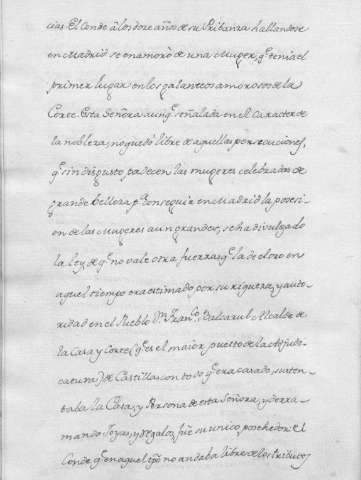 cias. El Conde â los dose año de su Pribanza hallandose
en Madrid se enamorò de una Muger, q.e tenia el
primer lugar en los galanteos amorosos de la
Corte. Esta Señora aunq.e señalada en el Caracter de
la nobleza, no quedò libre de aquellas persecuciones,
q.e sin disgusto padecen las mugeres celebradas de
grande belleza, p.a conseguir en Madrid la posesi-
on de las Mugeres aun grandes, se ha divulgado
la ley, de q.e no vale otra fuerza sq.e la de el oro en
aquel tiempo era estimado, por su riqueza, y auto-
ridad en el Pueblo D.n Fran.co Balcarub Alcalde de
la Casa y Corte (q.e es el maior puesto de la
catura) de Castilla con todo q.e era casado, susten-
taba la Casa, y Persona de esta Señora, y derra-
mando Joyas, y Regalos, fuè su unico poseedor: El
Conde q.e en aquel tpo no andaba libre de los tributos